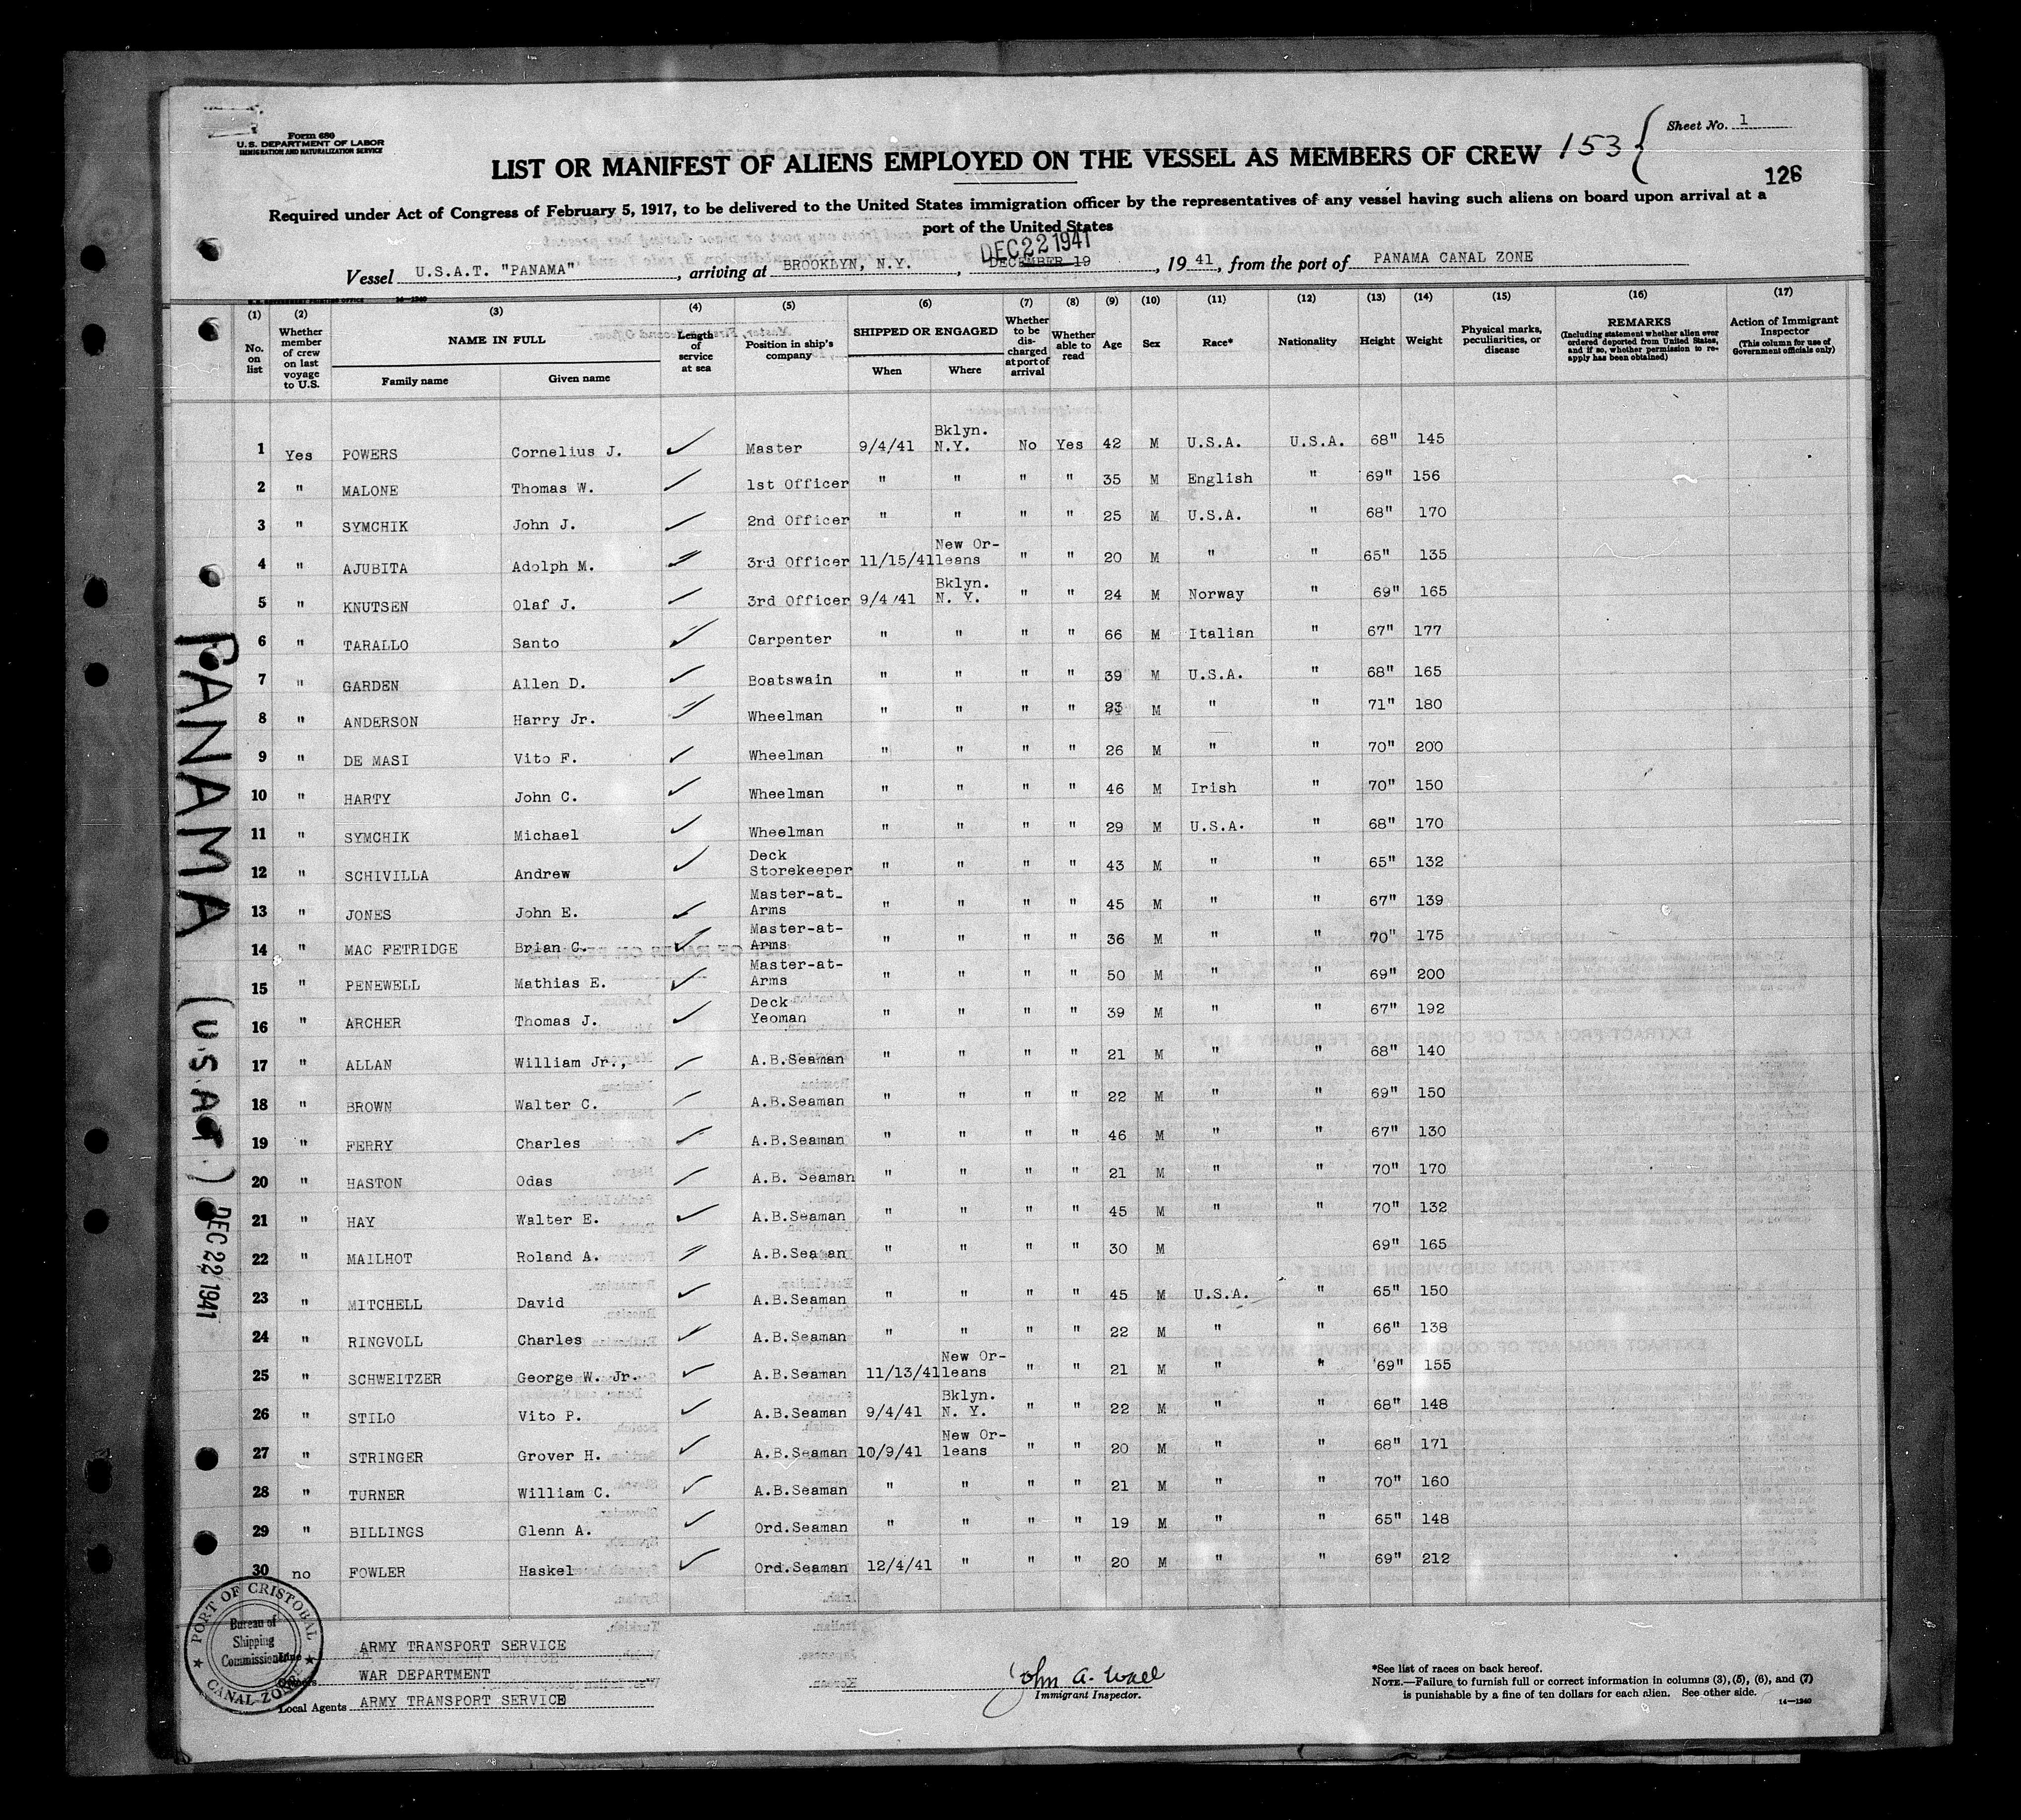 Form 680
U.S. DEPARTMENT OF LABOR
IMMIGRATION AND NATURALIZATION SERVICE
Sheet No. 1
LIST OR MANIFEST OF ALIENS EMPLOYED ON THE VESSEL AS MEMBERS OF CREW 153
126
Required under Act of Congress of February 5, 1917, to be delivered to the United States immigration officer by the representatives of any vessel having such aliens on board upon arrival at a
port of the United States
DEC 22 1941
Vessel U.S.A.T. "PANAMA", arriving at BROOKLYN, N.Y., DECEMBER 19, 19 41, from the port of PANAMA CANAL ZONE
U.S. GOVERNMENT PRINTING OFFICE 14—1240
(1) (2) (3) (4) (5) (6) (7) (8) (9) (10) (11) (12) (13) (14) (15) (16) (17)
No. on list
Whether member of crew on last voyage to U.S.
NAME IN FULL
Family name Given name
Length of service at sea
Position in ship's company
SHIPPED OR ENGAGED
When Where
Whether to be discharged at port of arrival
Whether able to read
Age
Sex
Race*
Nationality
Height
Weight
Physical marks, peculiarities, or disease
REMARKS
(Including statement whether alien ever ordered deported from United States, and if so, whether permission to reapply has been obtained)
Action of Immigrant Inspector
(This column for use of Government officials only)
1 Yes POWERS Cornelius J. ✓ Master 9/4/41 Bklyn. N.Y. No Yes 42 M U.S.A. U.S.A. 68" 145
2 " MALONE Thomas W. ✓ 1st Officer " " " " 35 M English " 69" 156
3 " SYMCHIK John J. ✓ 2nd Officer " " " " 25 M U.S.A. " 68" 170
4 " AJUBITA Adolph M. ✓ 3rd Officer 11/15/41 New Orleans " " 20 M " " 65" 135
5 " KNUTSEN Olaf J. ✓ 3rd Officer 9/4/41 Bklyn. N. Y. " " 24 M Norway " 69" 165
6 " TARALLO Santo ✓ Carpenter " " " " 66 M Italian " 67" 177
7 " GARDEN Allen D. ✓ Boatswain " " " " 39 M U.S.A. " 68" 165
8 " ANDERSON Harry Jr. ✓ Wheelman " " " " 23 M " " 71" 180
9 " DE MASI Vito F. ✓ Wheelman " " " " 26 M " " 70" 200
10 " HARTY John C. ✓ Wheelman " " " " 46 M Irish " 70" 150
11 " SYMCHIK Michael ✓ Wheelman " " " " 29 M U.S.A. " 68" 170
12 " SCHIVILLA Andrew ✓ Deck Storekeeper " " " " 43 M " " 65" 132
13 " JONES John E. ✓ Master-at-Arms " " " " 45 M " " 67" 139
14 " MAC FETRIDGE Brian C. ✓ Master-at-Arms " " " " 36 M " " 70" 175
15 " PENEWELL Mathias E. ✓ Master-at-Arms " " " " 50 M " " 69" 200
16 " ARCHER Thomas J. ✓ Deck Yeoman " " " " 39 M " " 67" 192
17 " ALLAN William Jr., ✓ A.B.Seaman " " " " 21 M " " 68" 140
18 " BROWN Walter C. ✓ A.B.Seaman " " " " 22 M " " 69" 150
19 " FERRY Charles ✓ A.B.Seaman " " " " 46 M " " 67" 130
20 " HASTON Odas ✓ A.B. Seaman " " " " 21 M " " 70" 170
21 " HAY Walter E. ✓ A.B.Seaman " " " " 45 M " " 70" 132
22 " MAILHOT Roland A. ✓ A.B.Sea an " " " " 30 M 69" 165
23 " MITCHELL David ✓ A.B.Seaman " " " " 45 M U.S.A. " 65" 150
24 " RINGVOLL Charles ✓ A.B.Seaman " " " " 22 M " " 66" 138
25 " SCHWEITZER George W. Jr. ✓ A.B.Seaman 11/13/41 New Orleans " " 21 M " " 69" 155
26 " STILO Vito P. ✓ A.B.Seaman 9/4/41 Bklyn. N. Y. " " 22 M " " 68" 148
27 " STRINGER Grover H. ✓ A.B.Seaman 10/9/41 New Orleans " " 20 M " " 68" 171
28 " TURNER William C. ✓ A.B.Seaman " " " " 21 M " " 70" 160
29 " BILLINGS Glenn A. ✓ Ord.Seaman " " " " 19 M " " 65" 148
30 no FOWLER Haskel ✓ Ord.Seaman 12/4/41 " " " 20 M " " 69" 212
PANAMA (U.S.A.T.) DEC 22 1941
PORT OF CRISTOBAL
Bureau of
Shipping
Commissioner
CANAL ZONE
Line ARMY TRANSPORT SERVICE
Owners WAR DEPARTMENT
Local Agents ARMY TRANSPORT SERVICE
John A. Wall
Immigrant Inspector.
*See list of races on back hereof.
NOTE.—Failure to furnish full or correct information in columns (3), (5), (6), and (7)
is punishable by a fine of ten dollars for each alien. See other side.
14—1240